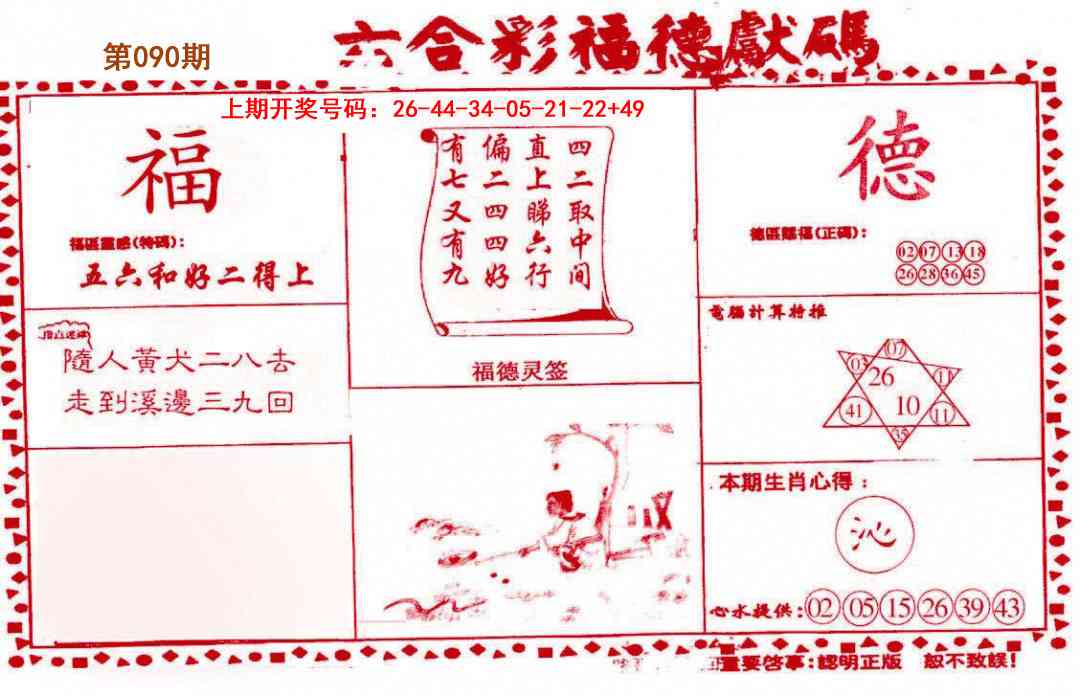 六合彩福德獻碼
第090期
上期开奖号码：26-44-34-05-21-22+49
福
福區靈感(特碼)：
五六和好二得上
隨人黃犬二八去
走到溪邊三九回
四二取中间
直上睇六行
偏二四四好
有七又有九
福德灵签
德
德區賜福(正碼)：
02 07 13 18
26 28 36 45
電腦計算特推
07
03
26
11
41
10
11
35
本期生肖心得：
沁
心水提供：02 05 15 26 39 43
重要啓事：認明正版 恕不致誤！